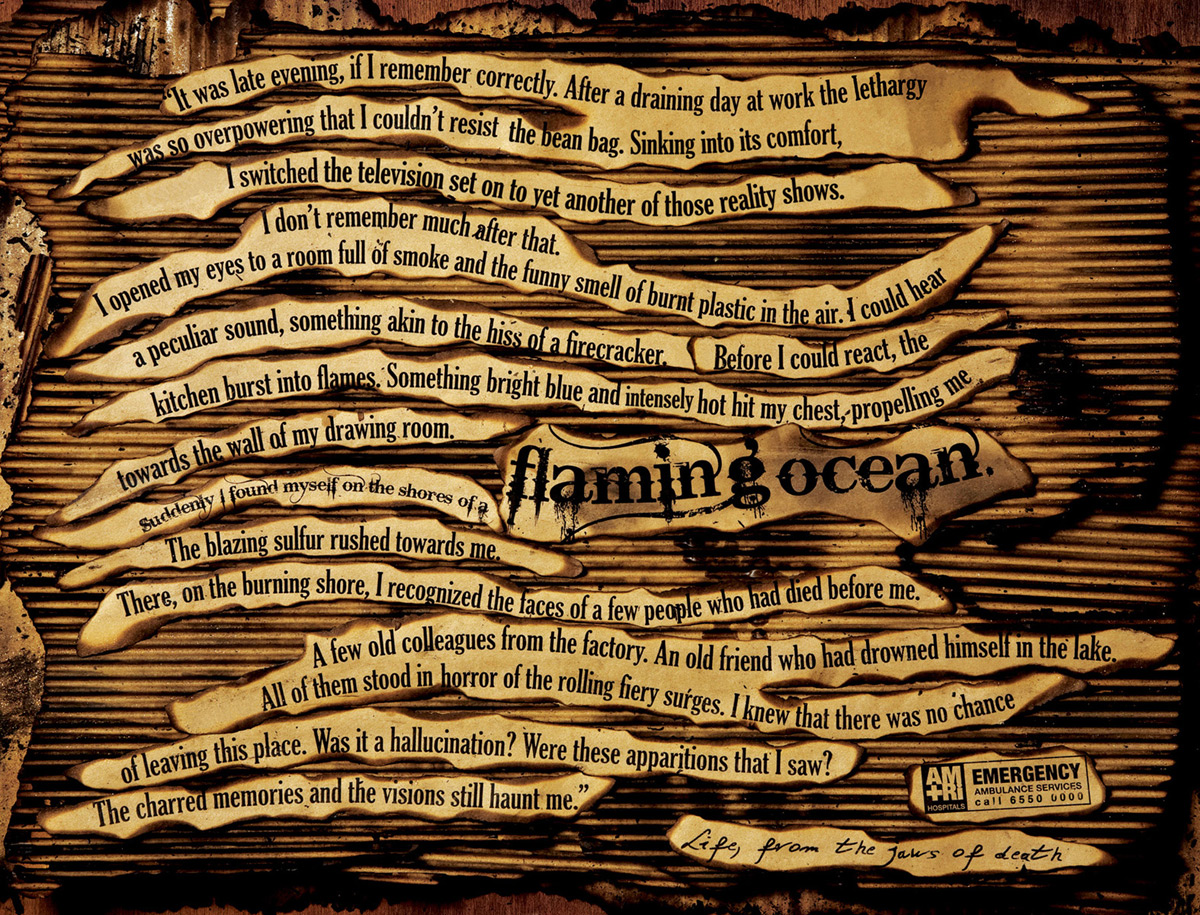 “It was late evening, if I remember correctly. After a draining day at work the lethargy
was so overpowering that I couldn’t resist the bean bag. Sinking into its comfort,
I switched the television set on to yet another of those reality shows.
I don’t remember much after that.
I opened my eyes to a room full of smoke and the funny smell of burnt plastic in the air. I could hear
a peculiar sound, something akin to the hiss of a firecracker. Before I could react, the
kitchen burst into flames. Something bright blue and intensely hot hit my chest, propelling me
towards the wall of my drawing room.
Suddenly I found myself on the shores of a
flaming ocean.
The blazing sulfur rushed towards me.
There, on the burning shore, I recognized the faces of a few people who had died before me.
A few old colleagues from the factory. An old friend who had drowned himself in the lake.
All of them stood in horror of the rolling fiery surges. I knew that there was no chance
of leaving this place. Was it a hallucination? Were these apparitions that I saw?
The charred memories and the visions still haunt me.”
AM
+RI
HOSPITALS
EMERGENCY
AMBULANCE SERVICES
call 6550 0000
Life, from the jaws of death